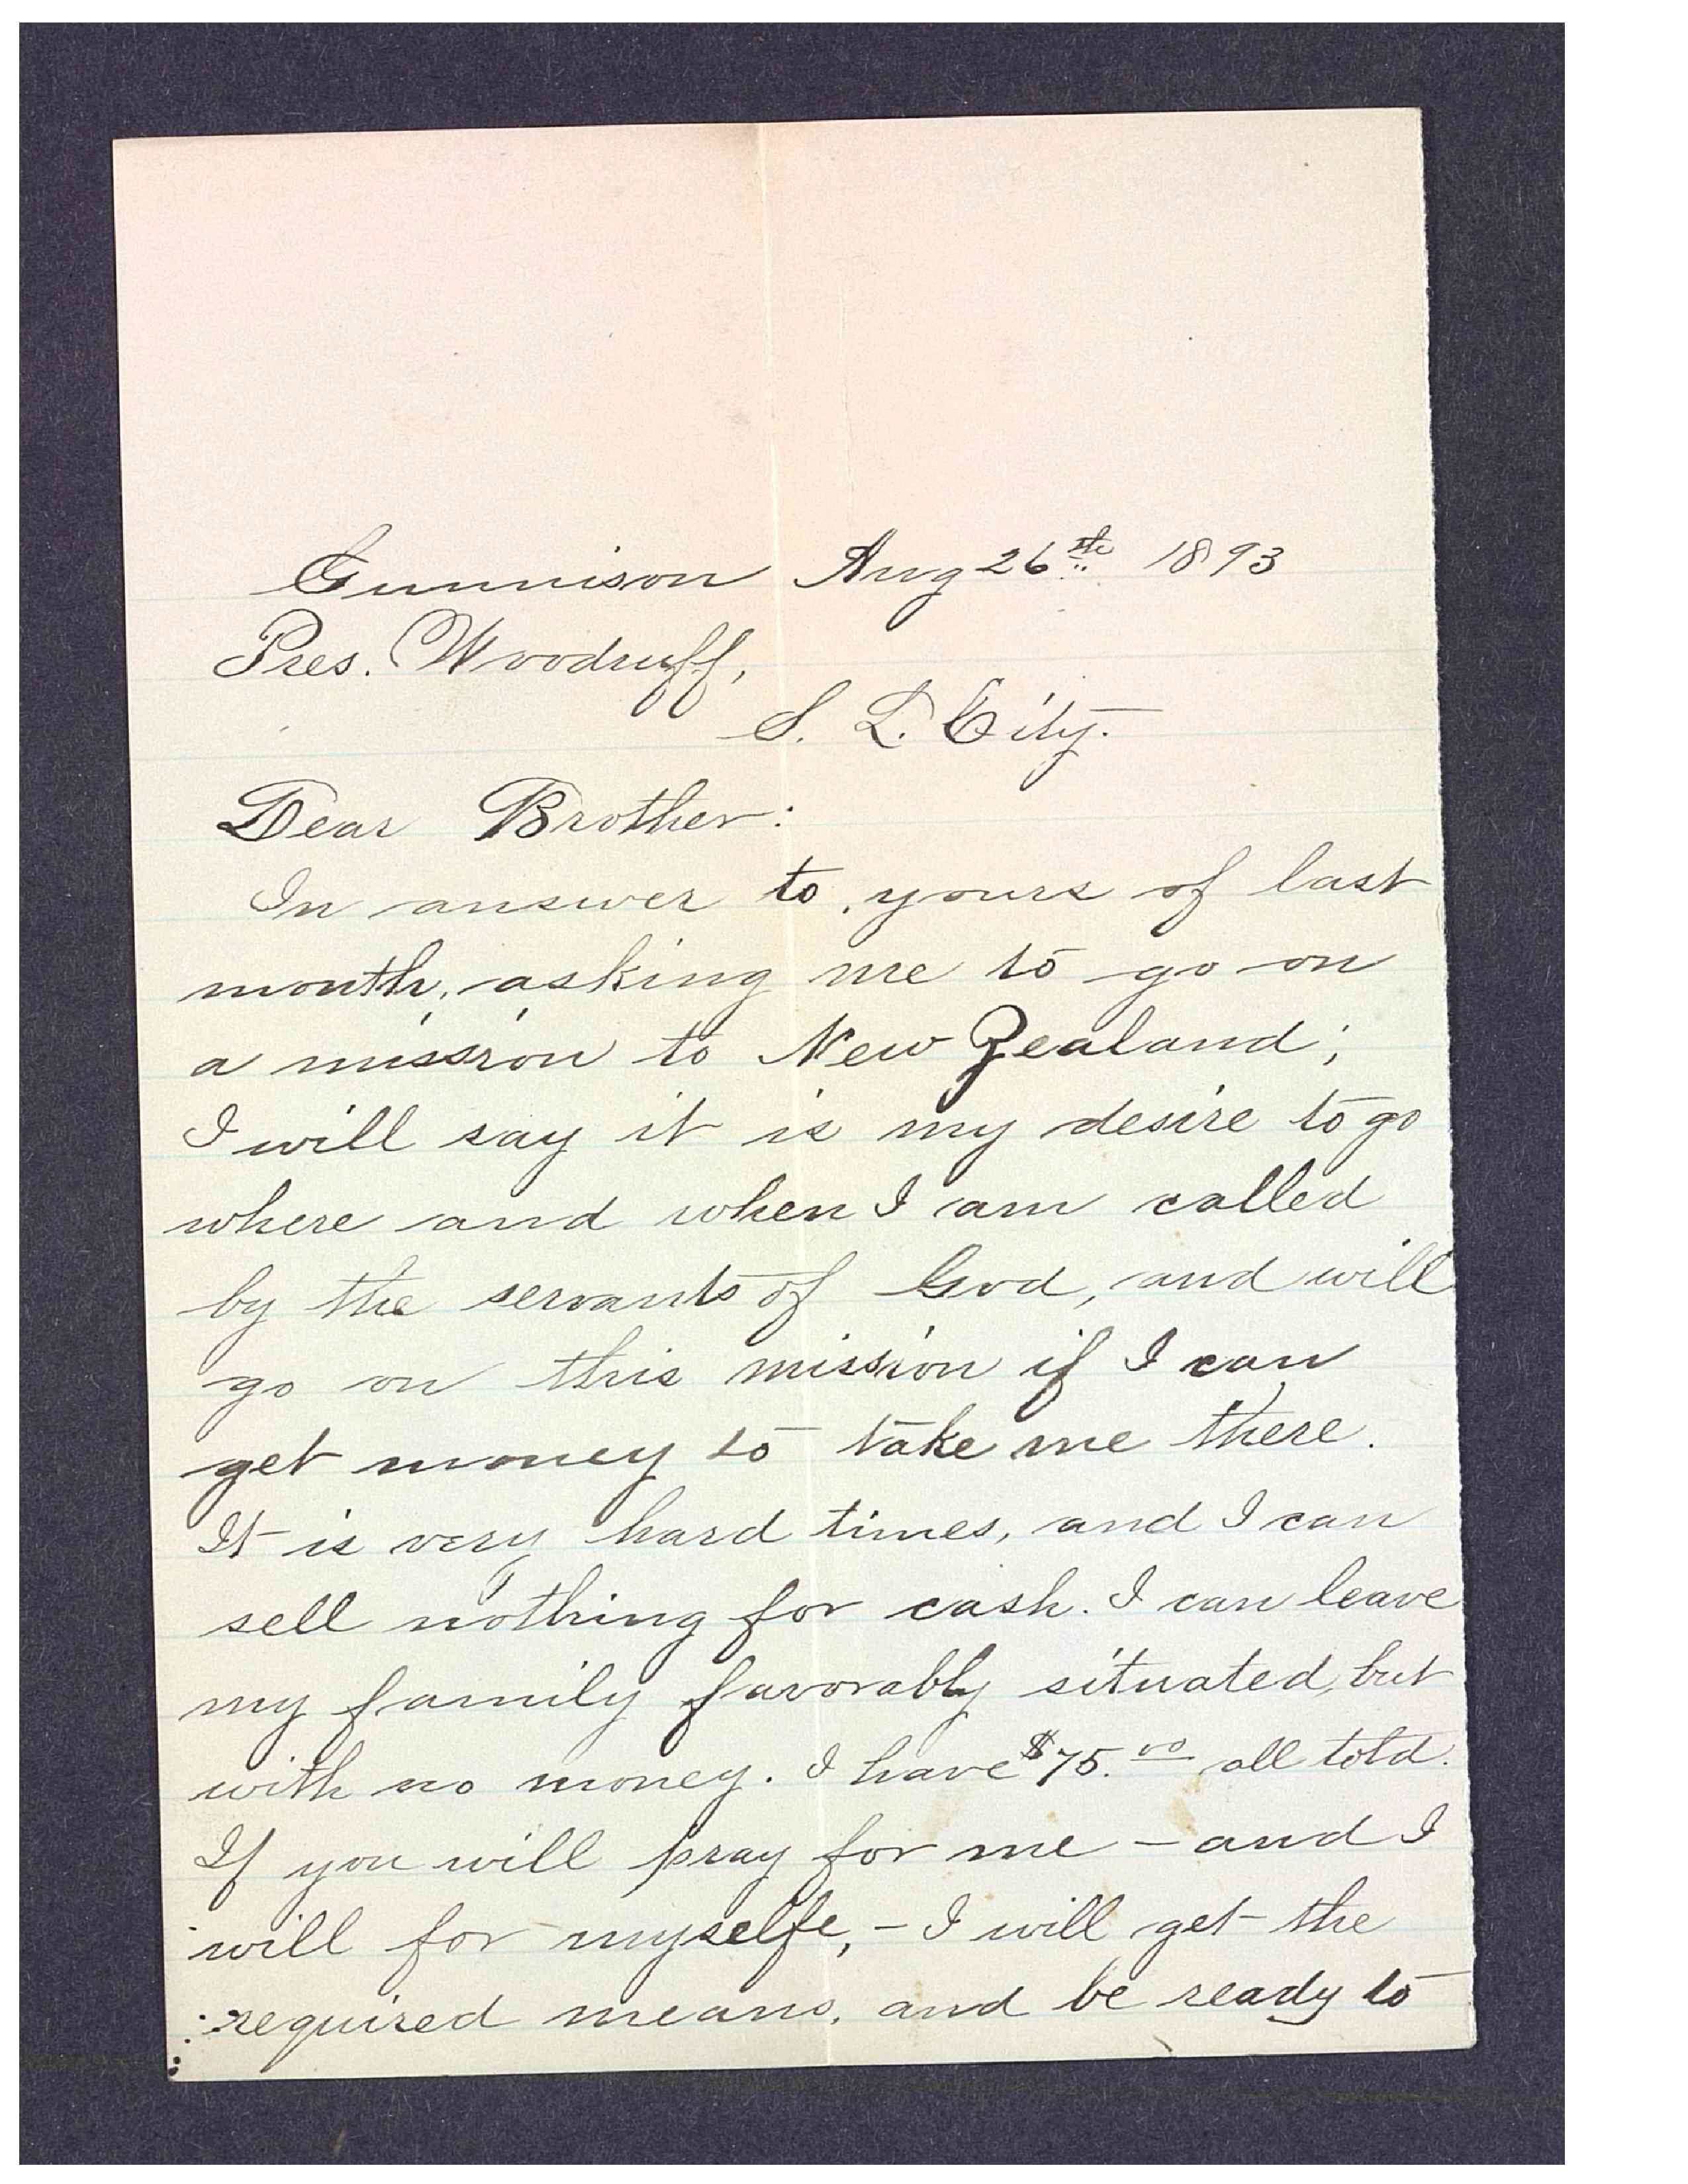 Gunnison Aug 26th 1893
Pres. Woodruff,
S. L. City.
Dear Brother:
In answer to, yours of last
month, asking me to go on
a mission to New Zealand;
I will say it is my desire to go
where and when I am called
by the servants of God, and will
go on this mission if I can
get money to take me there.
It is very hard times, and I can
sell nothing for cash. I can leave
my family favorably situated, but
with no money. I have $75.00 all told.
If you will pray for me – and I
will for myselfe, – I will get the
required means, and be ready to